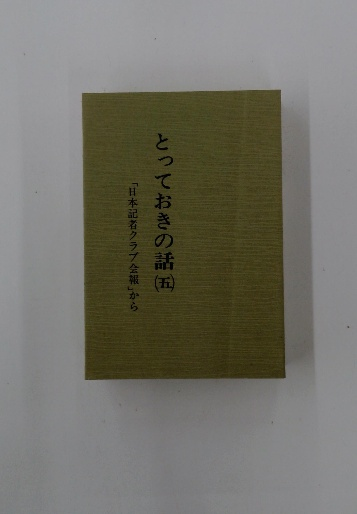 とっておきの話(五)
「日本記者クラブ会報」から